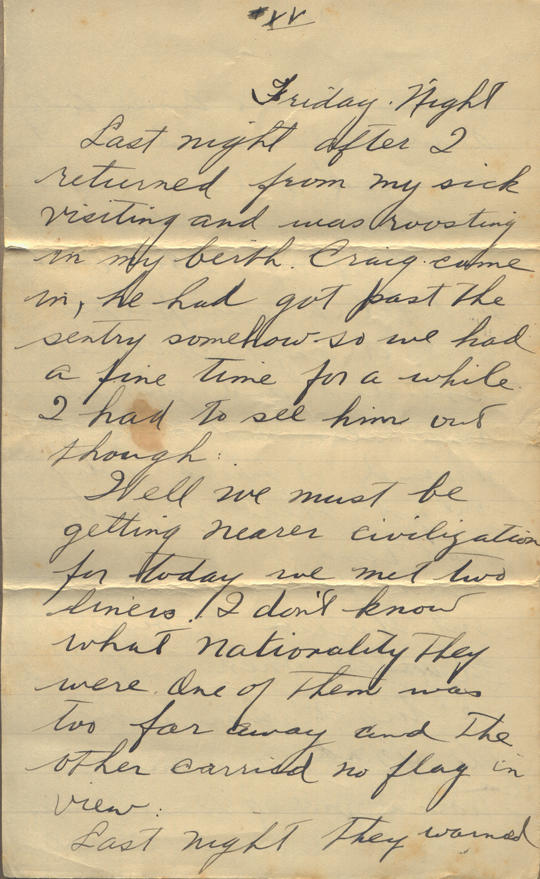 XV
Friday. Night
Last night after I
returned from my sick
visiting and was roosting
in my berth. Craig came
in, he had got past the
sentry somehow so we had
a fine time for a while.
I had to see him out
though.
Well we must be
getting nearer civilization
for today we met two
liners. I don't know
what nationality they
were. One of them was
too far away and the
other carried no flag in
view.
Last night they warned